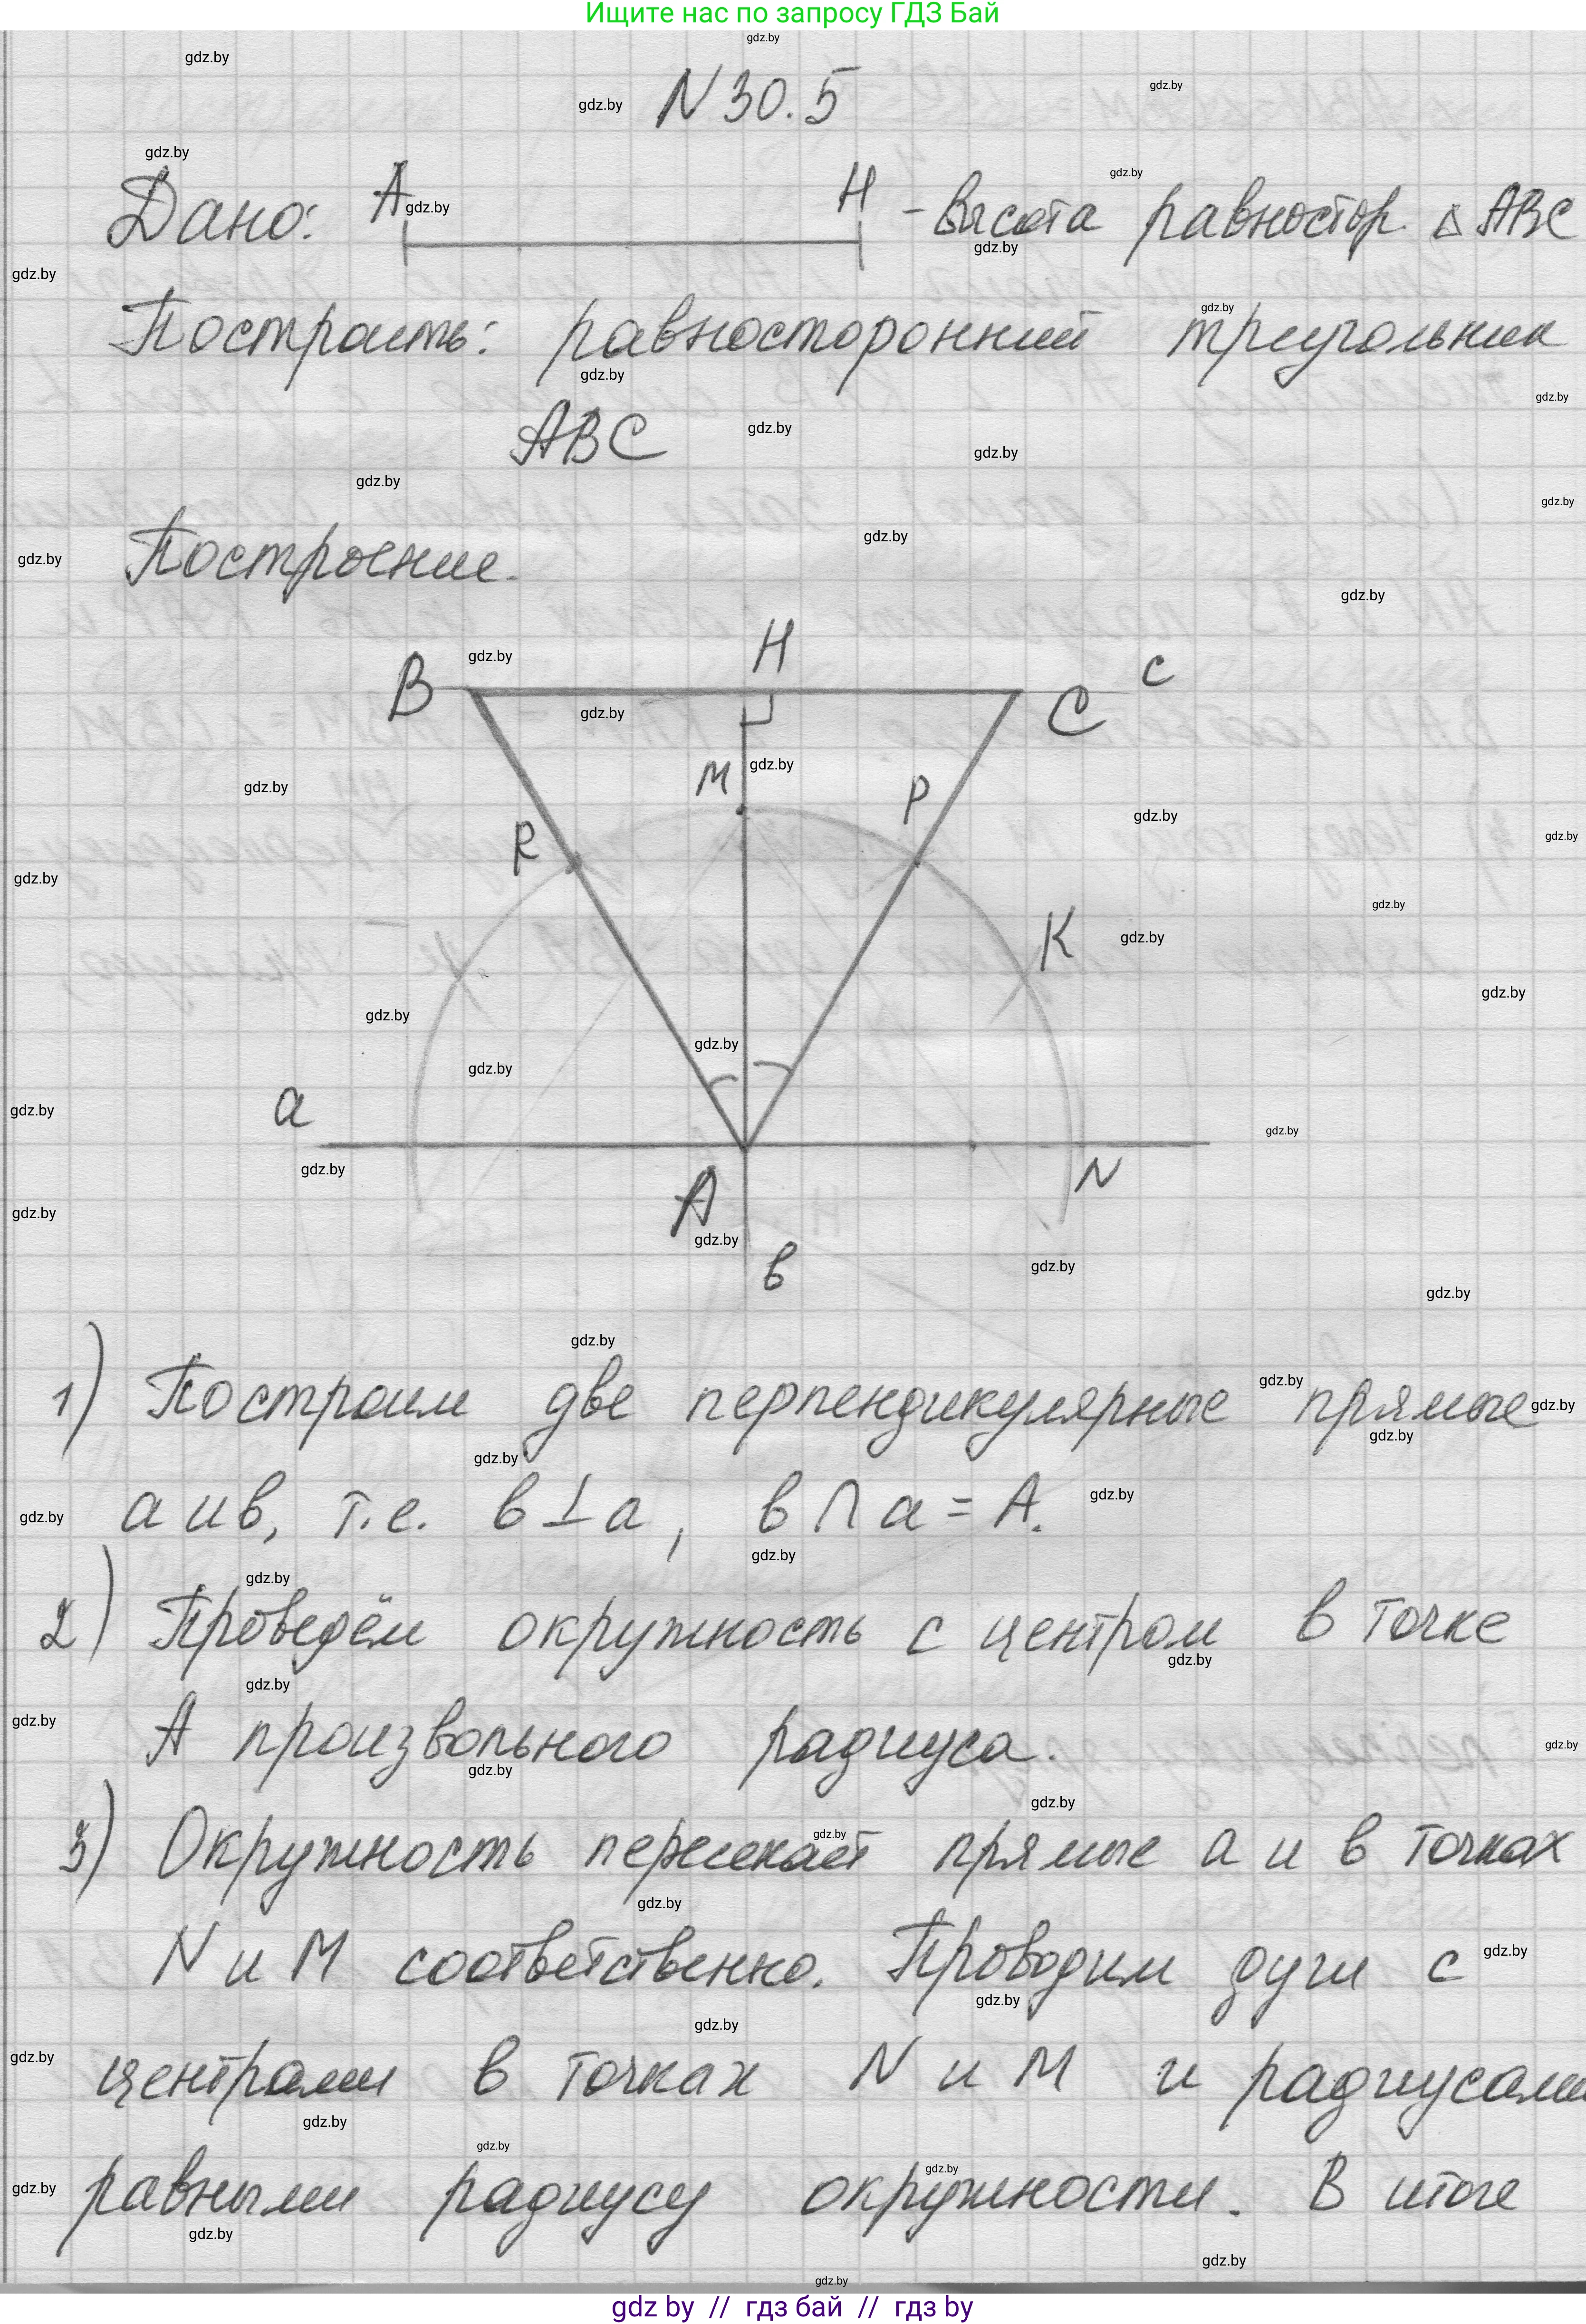 Ищите нас по запросу ГДЗ Бай
N 30.5
Дано: A H - высота равностор. △ ABC
Построить: равносторонний треугольник
ABC
Построение.
B H C c
M P
R
K
a
A N
в
1) Построим две перпендикулярные прямые
a и в, т.е. в ⊥ a, в ∩ a = A.
2) Проведём окружность с центром в точке
A произвольного радиуса.
3) Окружность пересекает прямые a и в точках
N и M соответственно. Проводим дуги с
центрами в точках N и M и радиусами
равными радиусу окружности. В итоге
gdz by // гдз бай // гдз by